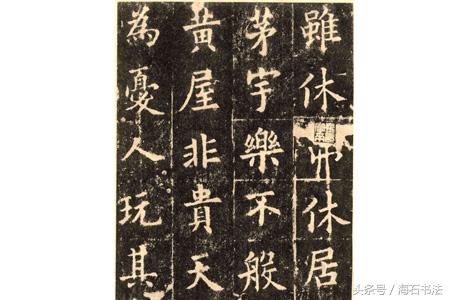 雖休休居
茅宇樂不般
黄屋非貴天
為憂人玩其
头条号 / 海石书法